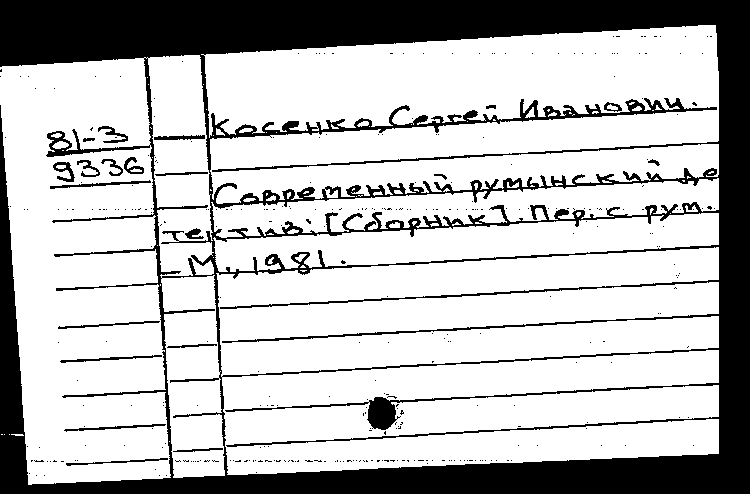 81-3
9336
Косенко, Сергей Иванович.
Современный румынский де
тектив: [Сборник]. Пер. с рум.
– М., 1981.